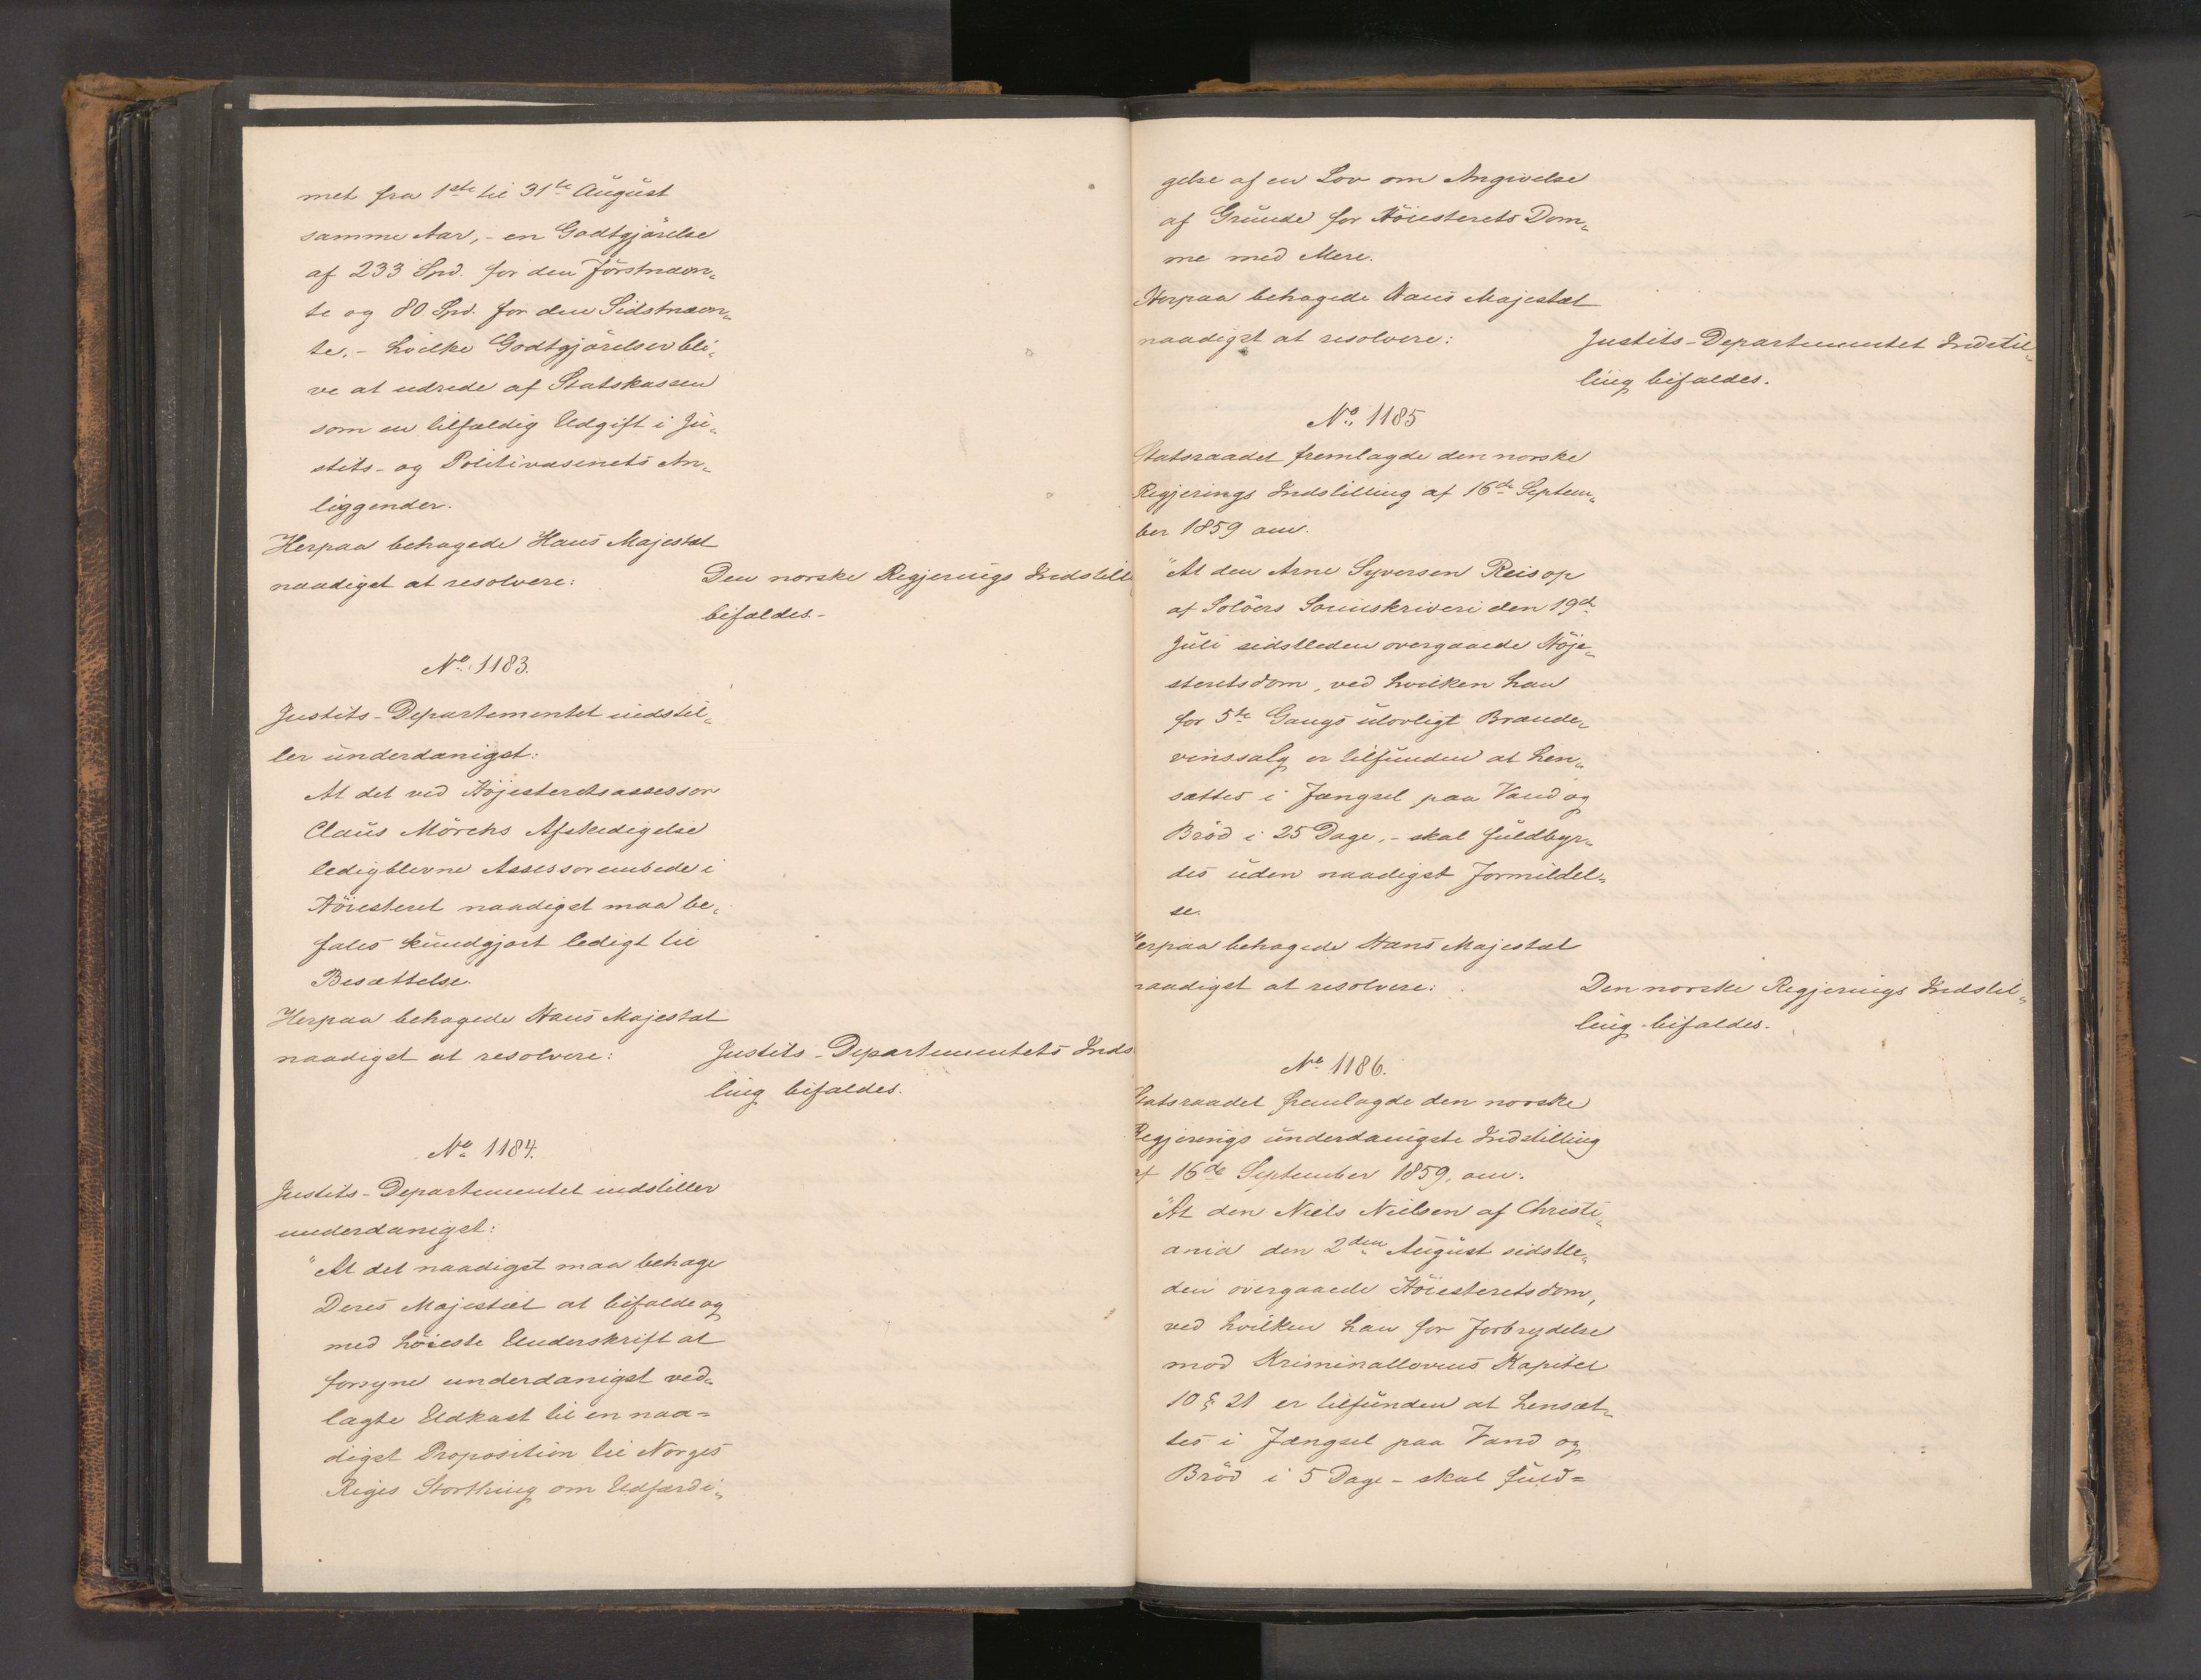 met fra 1ste til 31te August
samme Aar, - en Godtgjørelse
af 233 Spd. for den Förstnævn„
te og 80 Spd. for den Sidstnævn„
te, - hvilke Godtgjörelser bli„
ve at udrede af Statskassen
som en tilfældig Udgift i Ju„
stits- og Politivæsenets An„
liggender.
Herpaa behagede Hans Majestæt
naadigst at resolvere:
Den norske Regjerings Indstill
bifaldes.-
No. 1183.
Justits-Departementet indstil„
ler underdanigst:
At det ved Höjesteretsassessor
Claus Mörchs Afskedigelse
ledigblevne Assessorembede i
Höiesteret naadigst maa be„
fales kundgjort ledigt til
Besættelse.
Herpaa behagede Hans Majestæt
naadigst at resolvere:
Justits-Departementets Inds
ling bifaldes.
No 1184.
Justits-Departementet indstiller
underdanigst:
"At det naadigst maa behage
Deres Majestæt at bifalde og
med höieste Underskrift at
forsyne underdanigst ved„
lagte Udkast til en naa=
digst Proposition til Norges
Riges Storthing om Udfærdi„
gelse af en Lov om Angivelse
af Grunde for Höiesterets Dom„
me med Mere.
Herpaa behagede Hans Majestæt
naadigst at resolvere:
Justits-Departementet Indstil„
ling bifaldes.
No. 1185
Statsraadet fremlagde den norske
Regjerings Indstilling af 16de Septem„
ber 1859 om.
"At den Arne Syversen Reisop
af Solöers Sorinskriveri den 19de
Juli sidstleden overgaaede Höje„
steretsdom, ved hvilken han
for 5te Gangs ulovligt Brænde„
vinssalg er tilfunden at hen„
sættes i Fængsel paa Vand og
Bröd i 25 Dage, - skal fuldbyr„
des uden naadigst Formildel„
se.
erpaa behagede Hans Majestæt
naadigst at resolvere:
Den norske Regjerings Indstil„
ling bifaldes.
No 1186.
Statsraadet fremlagde den norske
Regjerings underdanigste Indstilling
af 16de September 1859, om:
"At den Niels Nielsen af Christi„
ania den 2den August sidstle„
den overgaaede Höiesteretsdom,
ved hvilken han for Forbrydelse
mod Kriminallovens Kapitel
10 § 21 er tilfunden at hensæt„
tes i Fængsel paa Vand og
Bröd i 5 Dage - skal fuld=